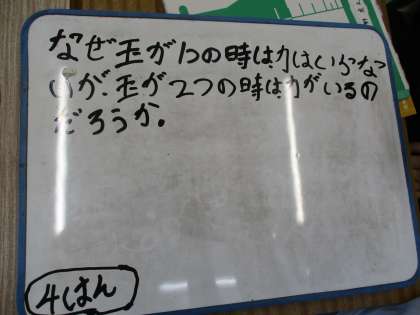 なぜ玉が1つの時は力はいらな
いが、玉が2つの時は力がいるの
だろうか.
4はん